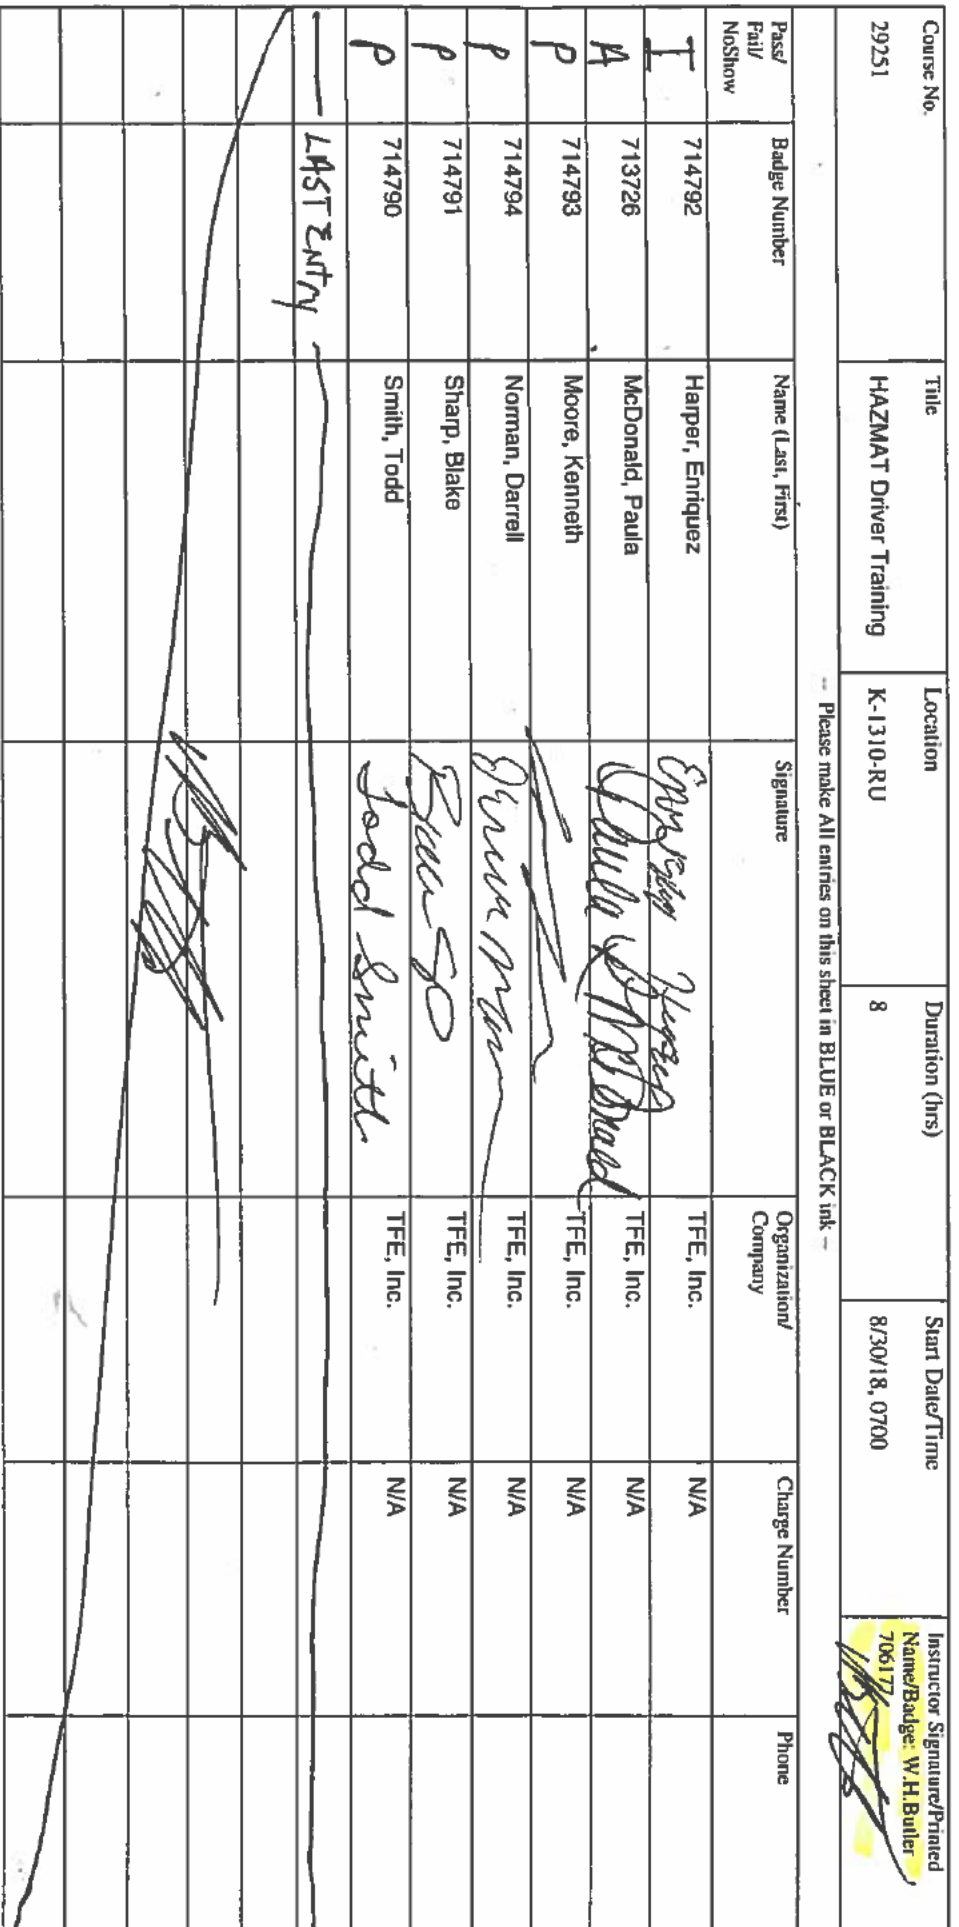 Course No. Title Location Duration (hrs) Start Date/Time Instructor Signature/Printed
Name/Badge: W.H.Butler
29251 HAZMAT Driver Training K-1310-RU 8 8/30/18, 0700 706177
-- Please make All entries on this sheet in BLUE or BLACK ink --
Pass/ Badge Number Name (Last, First) Signature Organization/ Charge Number Phone
Fail/ Company
NoShow
I 714792 Harper, Enriquez TFE, Inc. N/A
A 713726 McDonald, Paula Paula McDonald TFE, Inc. N/A
P 714793 Moore, Kenneth TFE, Inc. N/A
P 714794 Norman, Darrell TFE, Inc. N/A
P 714791 Sharp, Blake TFE, Inc. N/A
P 714790 Smith, Todd Todd Smith TFE, Inc. N/A
LAST ENTRY